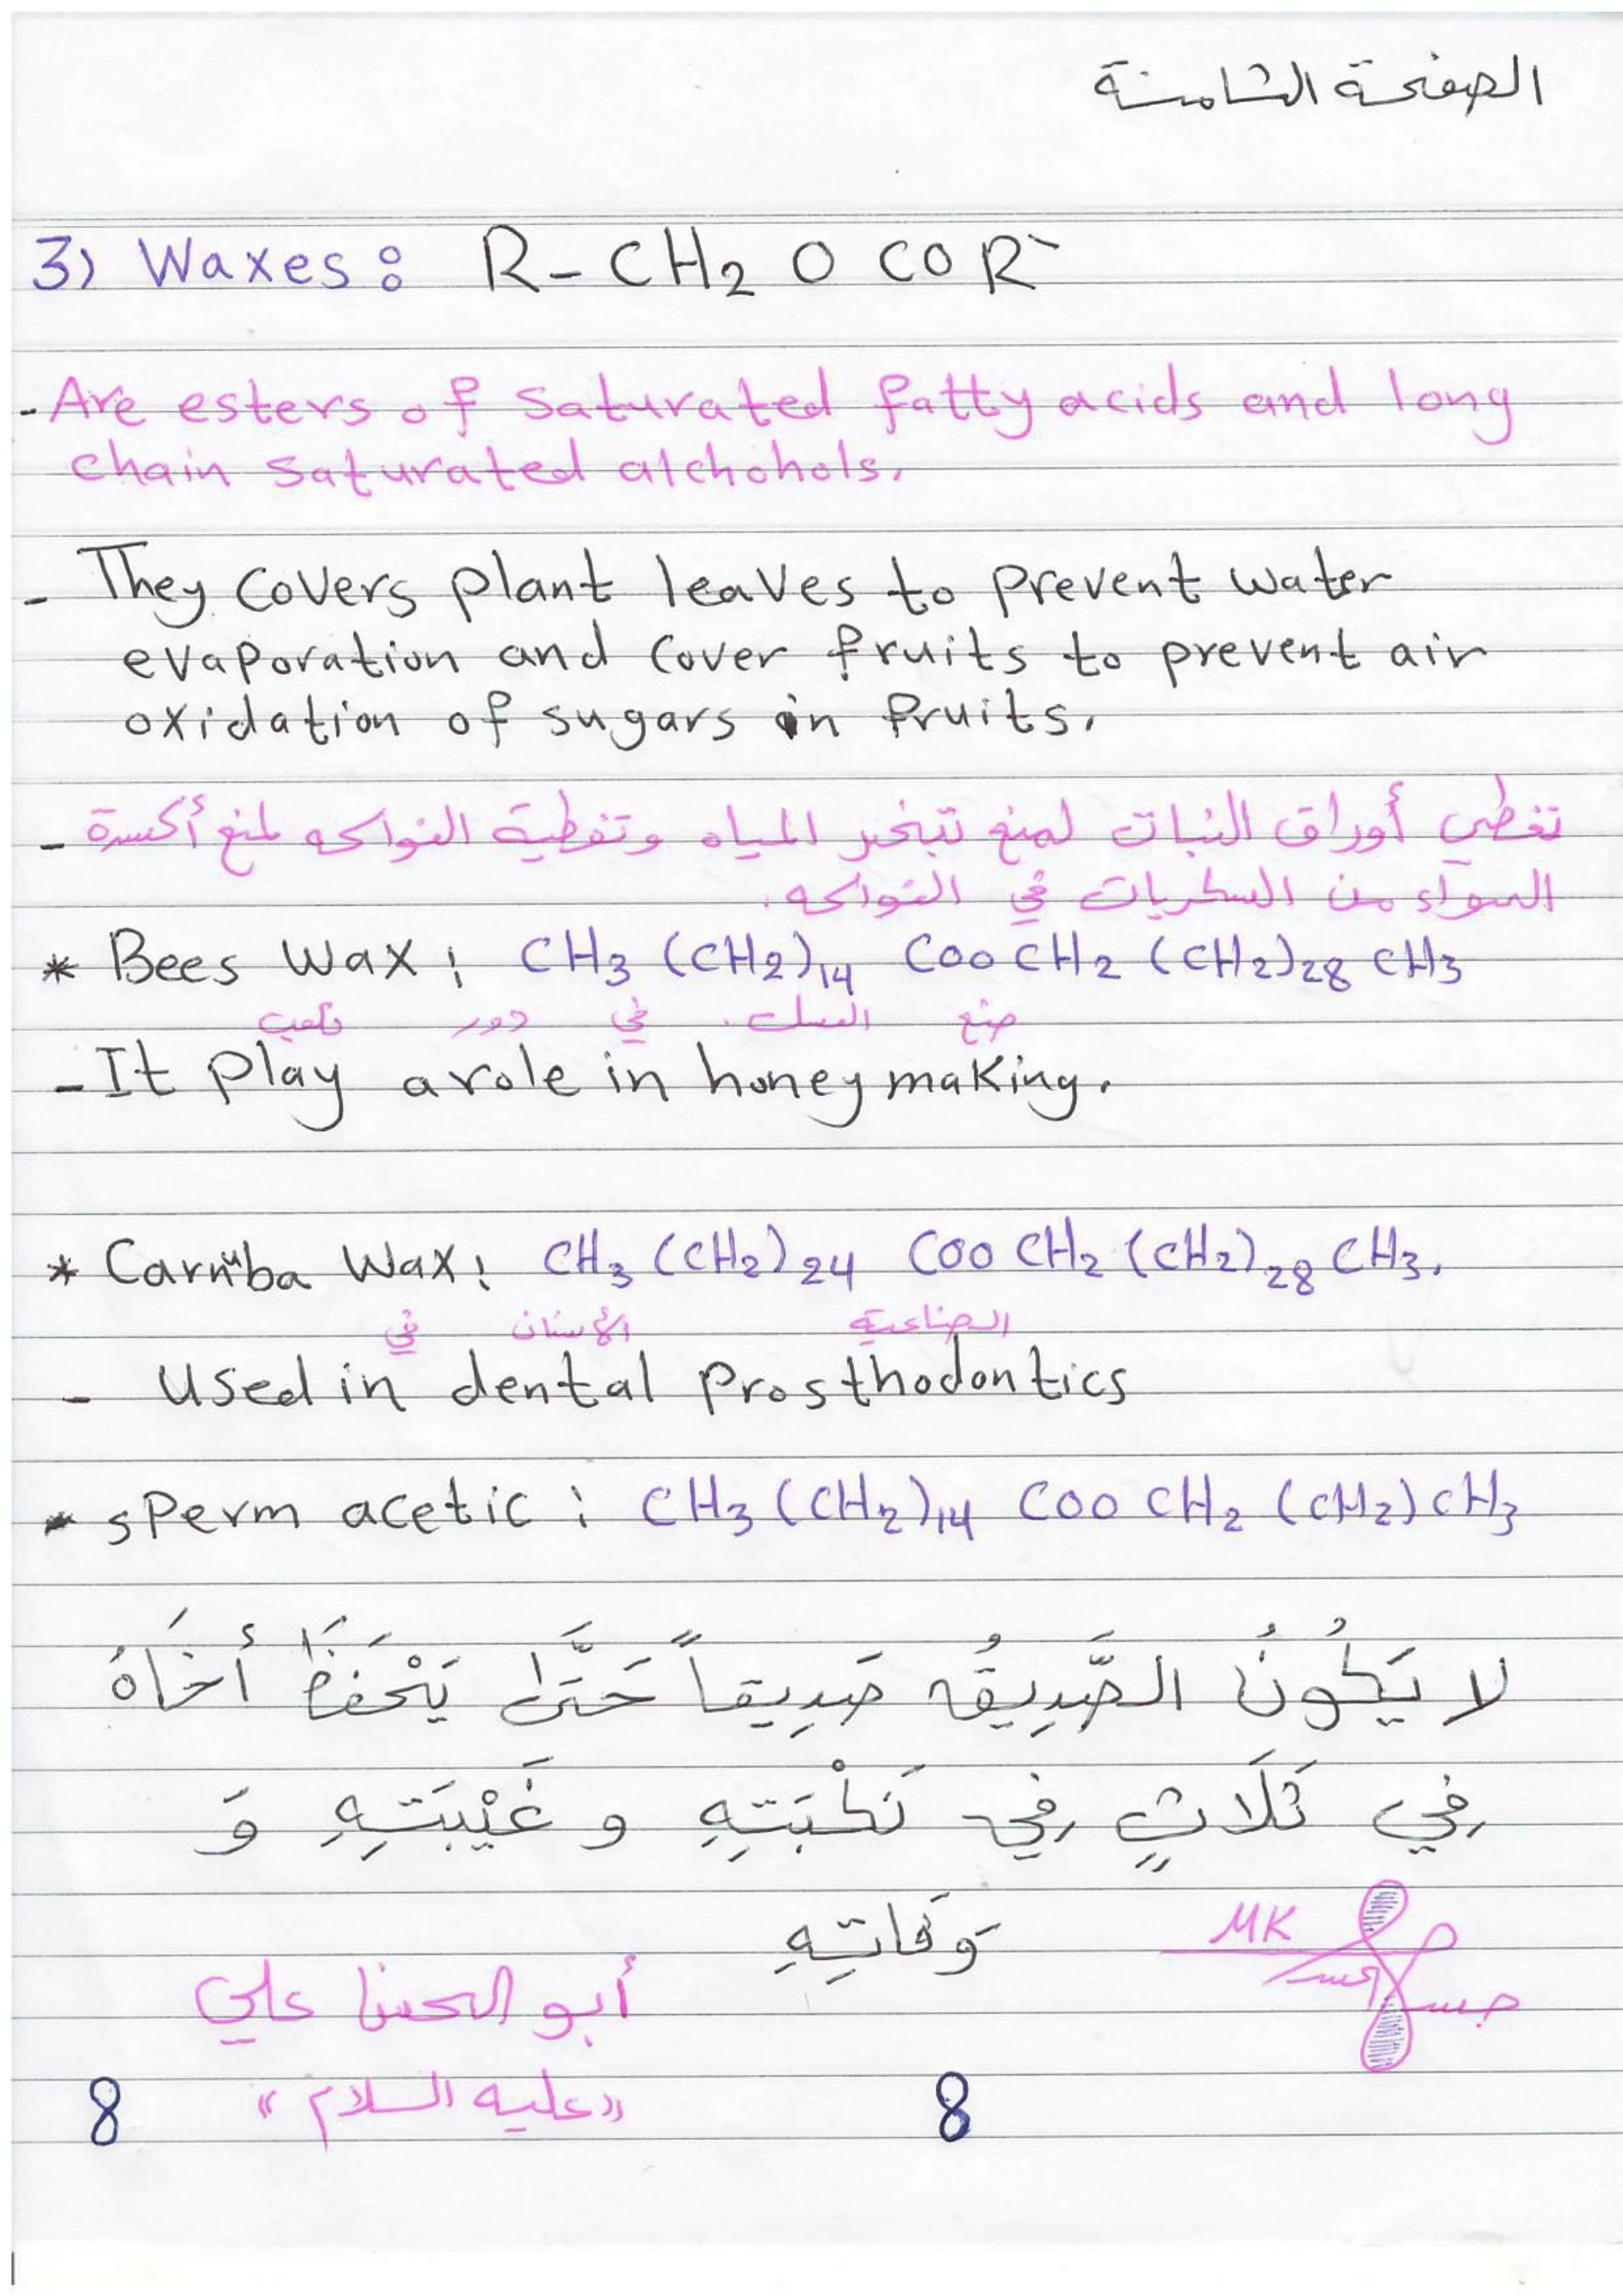 الصفحة الثامنة
3) Waxes: R-CH2 O COR`
- Are esters of saturated fatty acids and long
chain saturated alchohols.
- They covers plant leaves to prevent water
evaporation and cover fruits to prevent air
oxidation of sugars in fruits.
- تغطي أوراق النبات لمنع تبخر المياه وتغطية الفواكه لمنع أكسدة
الهواء من السكريات في الفواكه.
* Bees wax: CH3 (CH2)14 COO CH2 (CH2)28 CH3
تلعب دور في العسل. صنع
- It play a role in honey making.
* Carnuba wax: CH3 (CH2)24 COO CH2 (CH2)28 CH3.
في الأسنان الصناعية
- Used in dental prosthodontics
* sperm acetic: CH3 (CH2)14 COO CH2 (CH2) CH3
لا يَكُونُ الصَّدِيقُ صَدِيقاً حَتَّى يَحْفَظَ أَخَاهُ
فِي ثَلَاثٍ فِي نَكْبَتِهِ و غَيْبَتِهِ وَ
وَفَاتِهِ
MK
أبو الحسن علي
«عليه السلام»
8 8